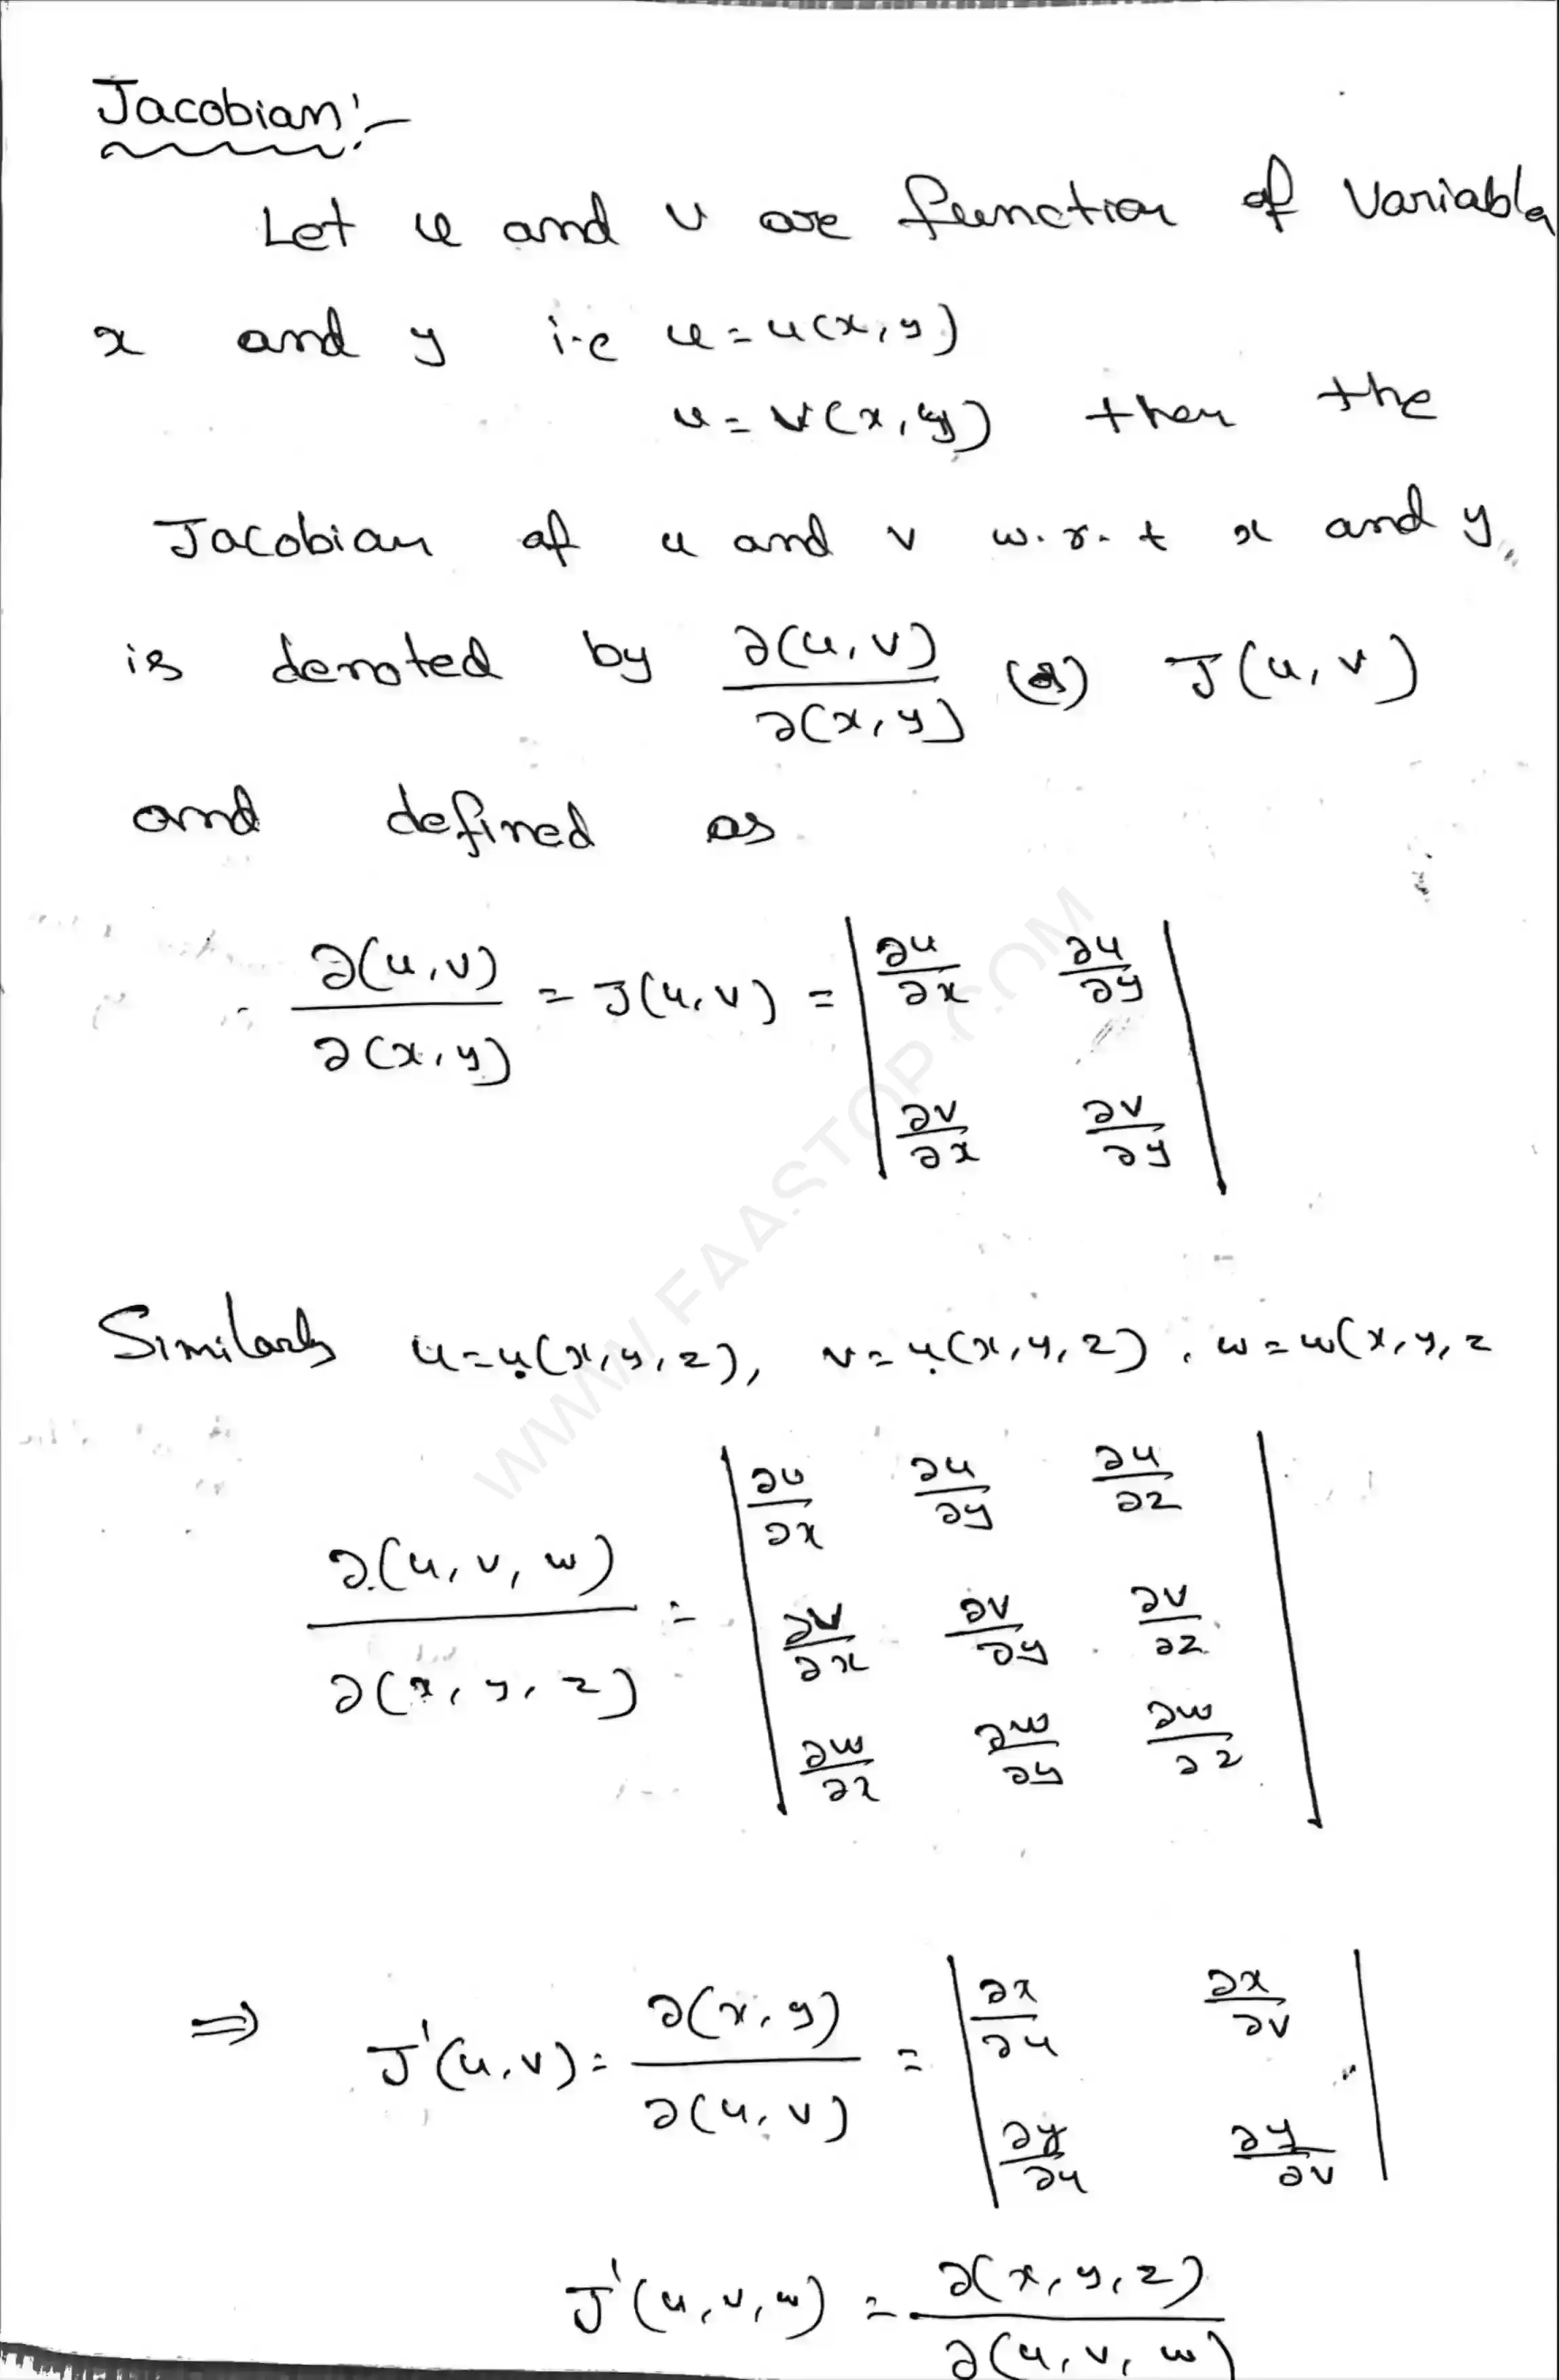 Jacobian:-
Let u and v are function of Variable
x and y i.e u = u(x, y)
u = v(x, y) then the
Jacobian of u and v w.r.t x and y,
is denoted by ∂(u, v)/∂(x, y) (or) J(u, v)
and defined as
∂(u, v)/∂(x, y) = J(u, v) = | ∂u/∂x ∂u/∂y |
| ∂v/∂x ∂v/∂y |
Similarly u = u(x, y, z), v = u(x, y, z), w = w(x, y, z
∂(u, v, w)/∂(x, y, z) = | ∂u/∂x ∂u/∂y ∂u/∂z |
| ∂v/∂x ∂v/∂y ∂v/∂z |
| ∂w/∂x ∂w/∂y ∂w/∂z |
⇒ J'(u, v) = ∂(x, y)/∂(u, v) = | ∂x/∂u ∂x/∂v |
| ∂y/∂u ∂y/∂v |
J'(u, v, w) = ∂(x, y, z)/∂(u, v, w)
WWW.FAASTOP.COM